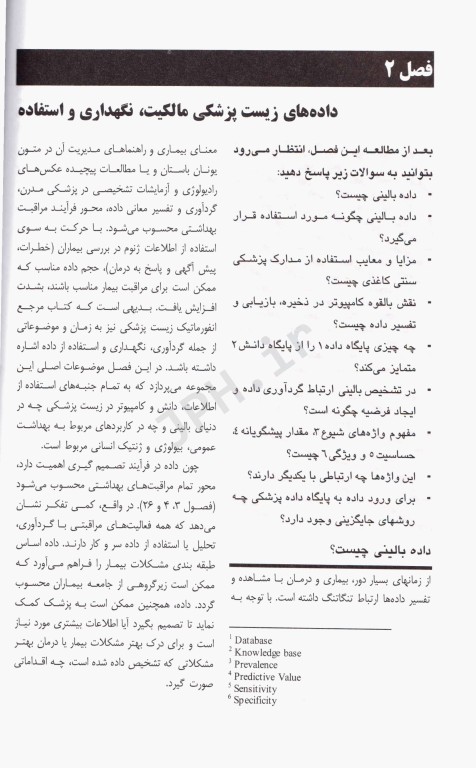 فصل ۲
داده‌های زیست پزشکی مالکیت، نگهداری و استفاده
بعد از مطالعه این فصل، انتظار می‌رود
بتوانید به سوالات زیر پاسخ دهید:
• داده بالینی چیست؟
• داده بالینی چگونه مورد استفاده قرار
می‌گیرد؟
• مزایا و معایب استفاده از مدارک پزشکی
سنتی کاغذی چیست؟
• نقش بالقوه کامپیوتر در ذخیره، بازیابی و
تفسیر داده چیست؟
• چه چیزی پایگاه داده ۱ را از پایگاه دانش ۲
متمایز می‌کند؟
• در تشخیص بالینی ارتباط گردآوری داده و
ایجاد فرضیه چگونه است؟
• مفهوم واژه‌های شیوع ۳، مقدار پیشگویانه ۴،
حساسیت ۵ و ویژگی ۶ چیست؟
• این واژه‌ها چه ارتباطی با یکدیگر دارند؟
• برای ورود داده به پایگاه داده پزشکی چه
روشهای جایگزینی وجود دارد؟
داده بالینی چیست؟
از زمانهای بسیار دور، بیماری و درمان با مشاهده و
تفسیر داده‌ها ارتباط تنگاتنگ داشته است. با توجه به
1 Database
2 Knowledge base
3 Prevalence
4 Predictive Value
5 Sensitivity
6 Specificity
معنای بیماری و راهنماهای مدیریت آن در متون
یونان باستان و یا مطالعات پیچیده عکس‌های
رادیولوژی و آزمایشات تشخیصی در پزشکی مدرن،
گردآوری و تفسیر معانی داده، محور فرآیند مراقبت
بهداشتی محسوب می‌شود. با حرکت به سوی
استفاده از اطلاعات ژنوم در بررسی بیماران (خطرات،
پیش آگهی و پاسخ به درمان)، حجم داده مناسب که
ممکن است برای مراقبت بیمار مناسب باشند، بشدت
افزایش یافت. بدیهی است که کتاب مرجع
انفورماتیک زیست پزشکی نیز به زمان و موضوعاتی
از جمله گردآوری، نگهداری و استفاده از داده اشاره
داشته باشد. در این فصل موضوعات اصلی این
مجموعه می‌پردازد که به تمام جنبه‌های استفاده از
اطلاعات، دانش و کامپیوتر در زیست پزشکی چه در
دنیای بالینی و چه در کاربردهای مربوط به بهداشت
عمومی، بیولوژی و ژنتیک انسانی مربوط است.
چون داده در فرآیند تصمیم گیری اهمیت دارد،
محور تمام مراقبت‌های بهداشتی محسوب می‌شود
(فصول ۳، ۴ و ۲۶). در واقع، کمی تفکر نشان
می‌دهد که همه فعالیت‌های مراقبتی با گردآوری،
تحلیل یا استفاده از داده سر و کار دارند. داده اساس
طبقه بندی مشکلات بیمار را فراهم می‌آورد که
ممکن است زیرگروهی از جامعه بیماران محسوب
گردد. داده، همچنین ممکن است به پزشک کمک
نماید تا تصمیم بگیرد آیا اطلاعات بیشتری مورد نیاز
است و برای درک بهتر مشکلات بیمار یا درمان بهتر
مشکلاتی که تشخیص داده شده است، چه اقداماتی
صورت گیرد.